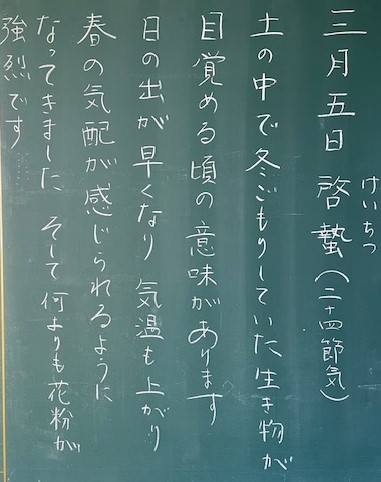 三月五日 啓蟄(二十四節気)
けいちつ
土の中で冬ごもりしていた生き物が
目覚める頃の意味があります
日の出が早くなり 気温も上がり
春の気配が感じられるように
なってきました そして何よりも花粉が
強烈です